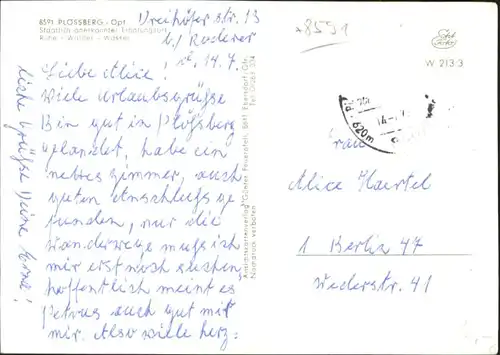 8591 PLÖSSBERG - Opf.
Staatlich anerkannter Erholungsort
Ruhe - Wälder - Wasser
Dreihöfer str. 13
b/ Raderer
d. 14.7.
Liebe Alice!
Viele Urlaubsgrüße
Bin gut in Plößberg
gelandet, habe ein
nettes Zimmer, auch
guten Anschluss ge
funden, nur die
Wanderwege muss ich
mir erst noch suchen
hoffentlich meint es
Petrus auch gut mit
mir. Also viele herz=
liche Grüsse Deine Erna!
Ansichtskartenverlag Günter 8591
Nachdruck verboten
8591
Echt Foto
W 213/3
620m
Frau
Alice Haertel
1 Berlin 47
Wederstr. 41